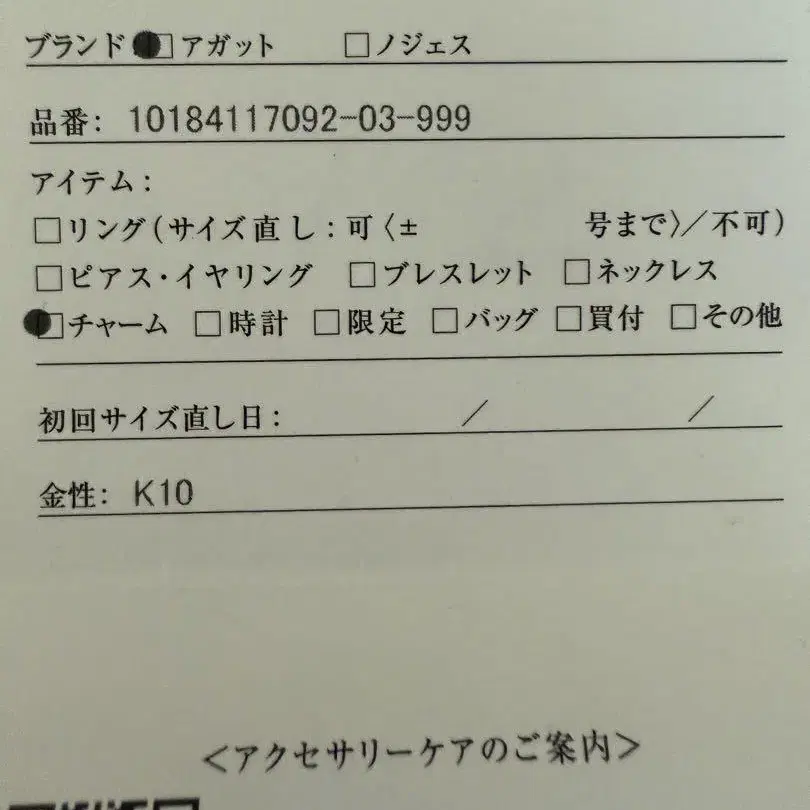 ブランド ●□アガット □ノジェス
品番: 10184117092-03-999
アイテム:
□リング(サイズ直し:可〈± 号まで〉/不可)
□ピアス・イヤリング □ブレスレット □ネックレス
●□チャーム □時計 □限定 □バッグ □買付 □その他
初回サイズ直し日: / /
金性: K10
<アクセサリーケアのご案内>